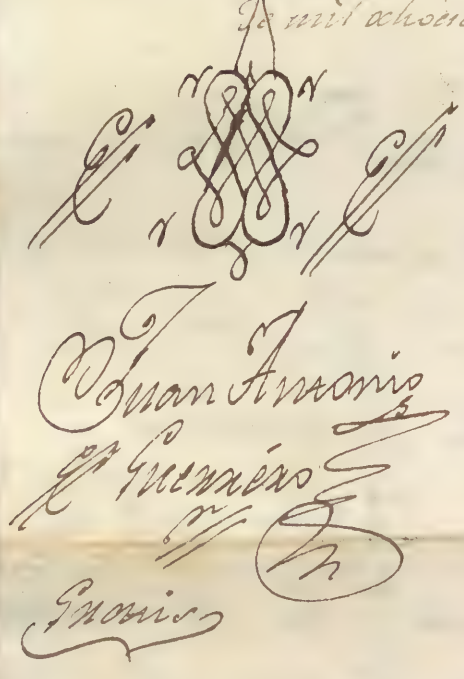 de mil ochocien
Juan Antonio
Guerrero
Gratis